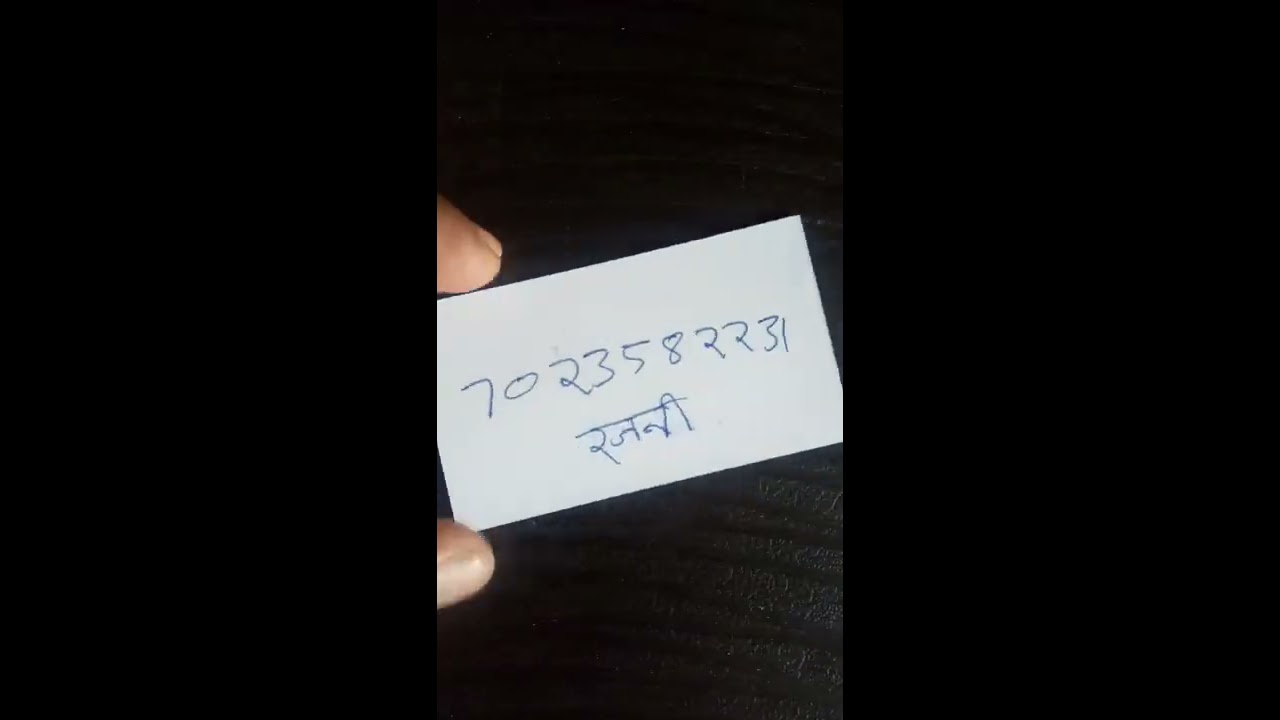 7023582231
रजनी